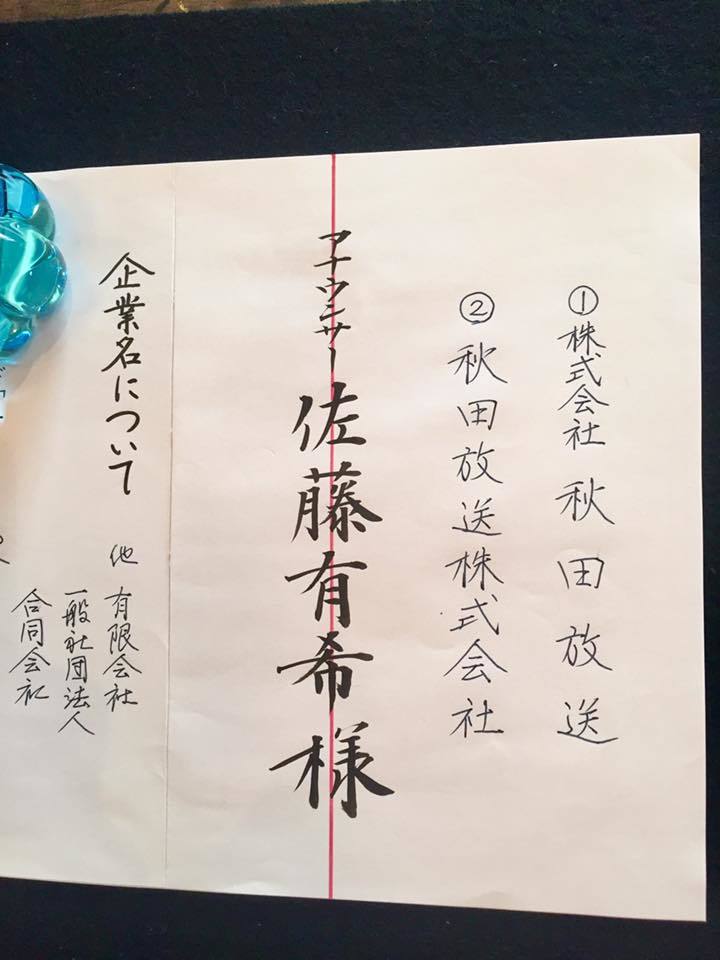 ①株式会社 秋田放送
②秋田放送株式会社
アナウンサー 佐藤有希様
企業名について
他 有限会社
一般社団法人
合同会社